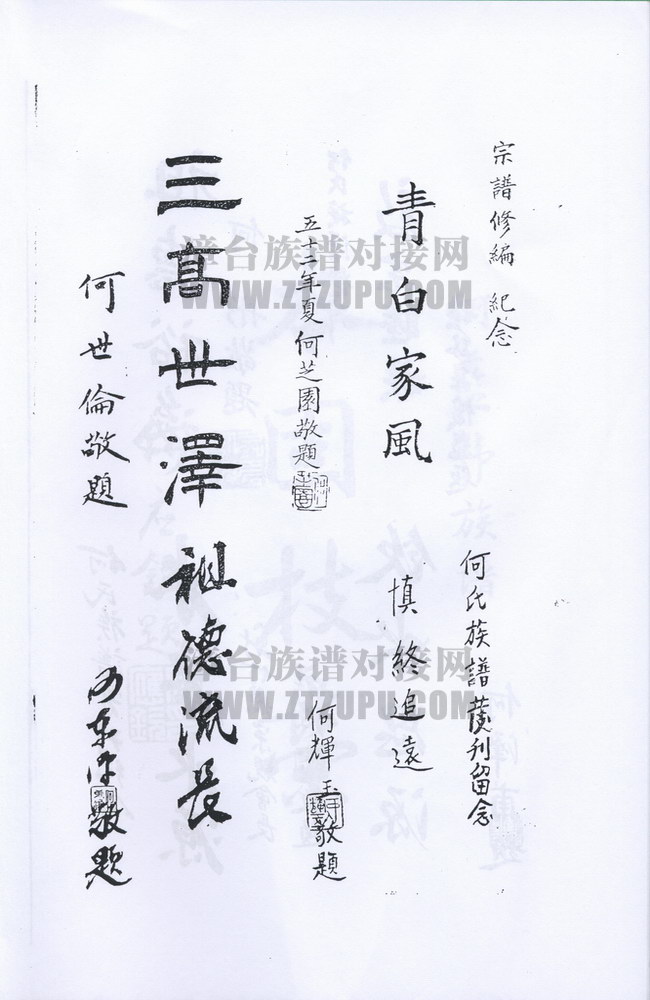 宗譜修編 紀念
青白家風
五十二年夏何芝園敬題
何氏族譜發刊留念
慎終追遠
何輝玉敬題
三高世澤
何世倫敬題
祖德流長
敬題
漳台族谱对接网
WWW.ZTZUPU.COM
漳台族谱对接网
WWW.ZTZUPU.COM